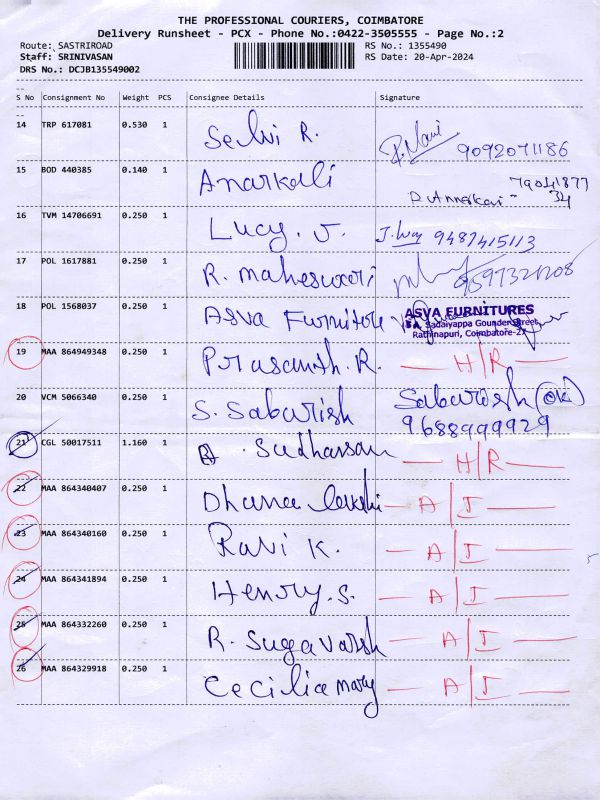 THE PROFESSIONAL COURIERS, COIMBATORE
Delivery Runsheet - PCX - Phone No.:0422-3505555 - Page No.:2
Route: SASTRIROAD RS No.: 1355490
Staff: SRINIVASAN RS Date: 20-Apr-2024
DRS No.: DCJB135549002
--
S No Consignment No Weight PCS Consignee Details Signature
--
14 TRP 617081 0.530 1 Selvi R. 9092071186
15 BOD 440385 0.140 1 Anarkali 79041877
34
16 TVM 14706691 0.250 1 Lucy. J. J. Lucy 9487415113
17 POL 1617881 0.250 1 R. maheswari
18 POL 1568037 0.250 1 Asva Furniture ASVA FURNITURES
Sadaiyappa Gounder Street,
Rathinapuri, Coimbatore-27
19 MAA 864949348 0.250 1 Prasanth. R. H/R
20 VCM 5066340 0.250 1 S. Sabarish Sabarish (OK)
9688999929
21 CGL 50017511 1.160 1 Sudharsan H/R
22 MAA 864340407 0.250 1 Dhana lakshi A/I
23 MAA 864340160 0.250 1 Ravi K. A/I
24 MAA 864341894 0.250 1 Henry. S. A/I
25 MAA 864332260 0.250 1 R. Sugavarsh A/I
26 MAA 864329918 0.250 1 Cecilia mary A/I